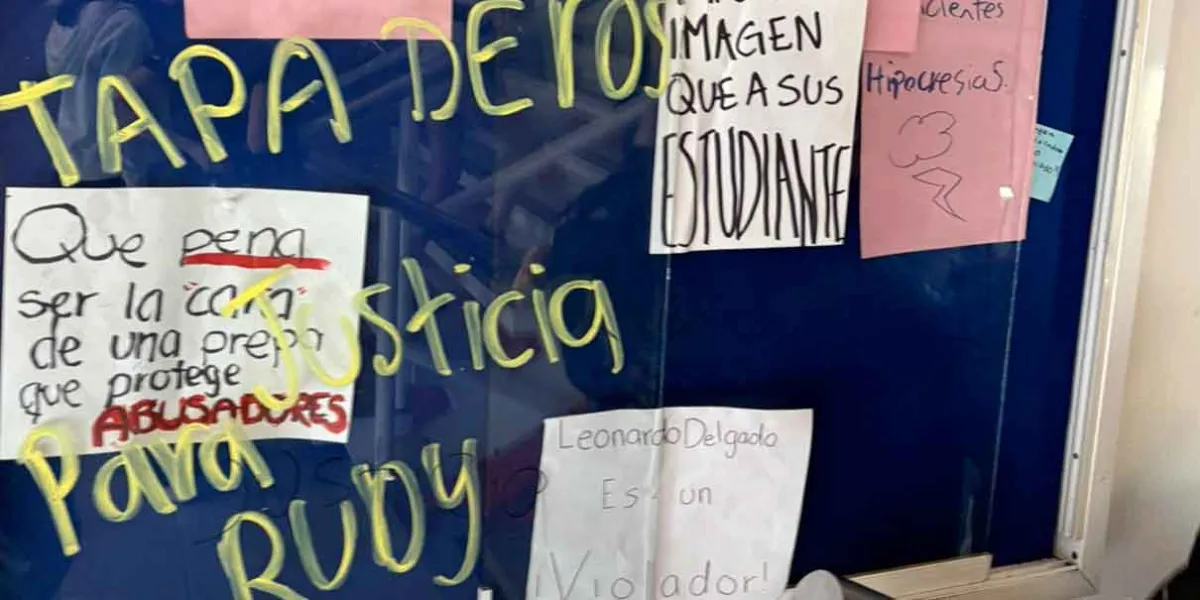 TAPADEROS
IMAGEN
QUE A SUS
ESTUDIANTE
cientes
Hipocresias.
Que pena
ser la "cara"
de una prepa
que protege
ABUSADORES
Justicia
Para
RUDY
Leonardo Delgado
Es un
¡Violador!